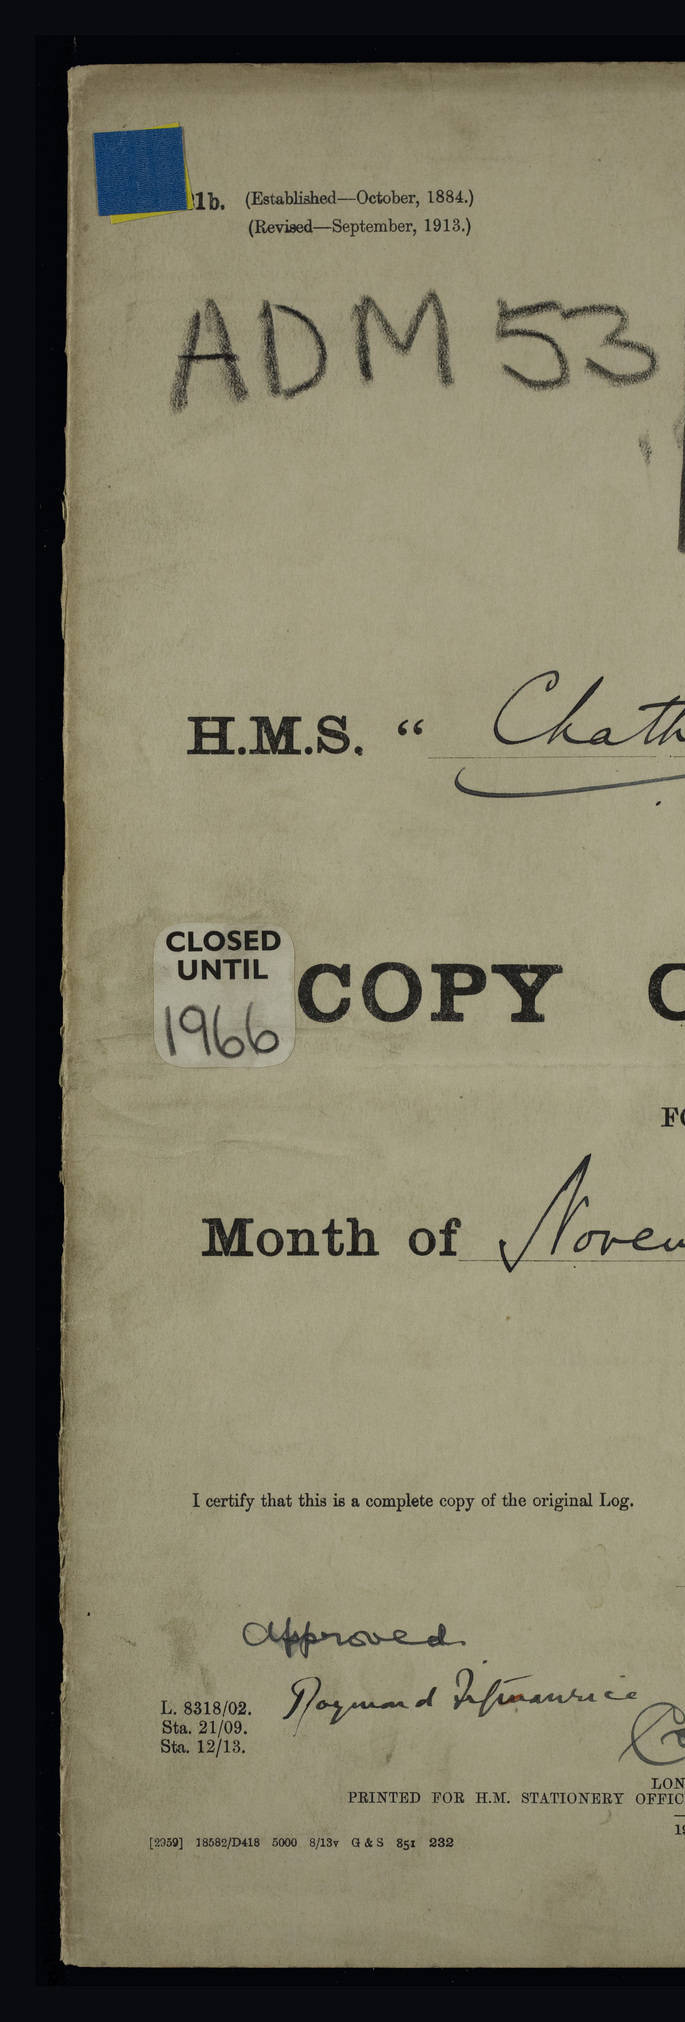 1b. (Established—October, 1884.)
(Revised—September, 1913.)
ADM 53
H.M.S. “ Chath
CLOSED
UNTIL
1966
COPY
FO
Month of Novem
I certify that this is a complete copy of the original Log.
Approved.
Raymond Fitzmaurice
L. 8318/02.
Sta. 21/09.
Sta. 12/13.
LON
PRINTED FOR H.M. STATIONERY OFFIC
19
[2959] 18582/D418 5000 8/13v G & S 851 232